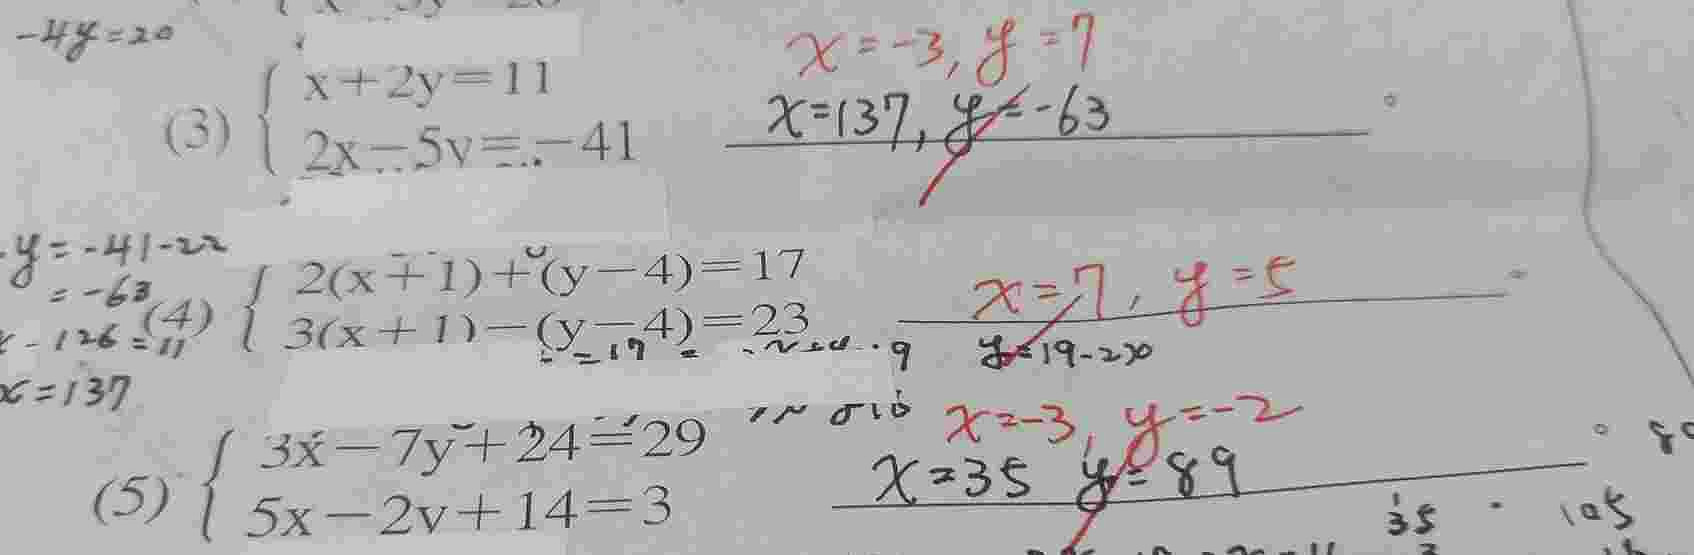 -4y=20
x=-3, y=7
(3) { x+2y=11
2x-5y=-41
x=137, y=-63 。
y=-41-22
=-63
x-126=11
x=137
(4) { 2(x+1)+(y-4)=17
3(x+1)-(y-4)=23
x=7, y=5 。
y=19-220
(5) { 3x-7y+24=29
5x-2y+14=3
x=-3, y=-2
x=35 y=89 。
35
105